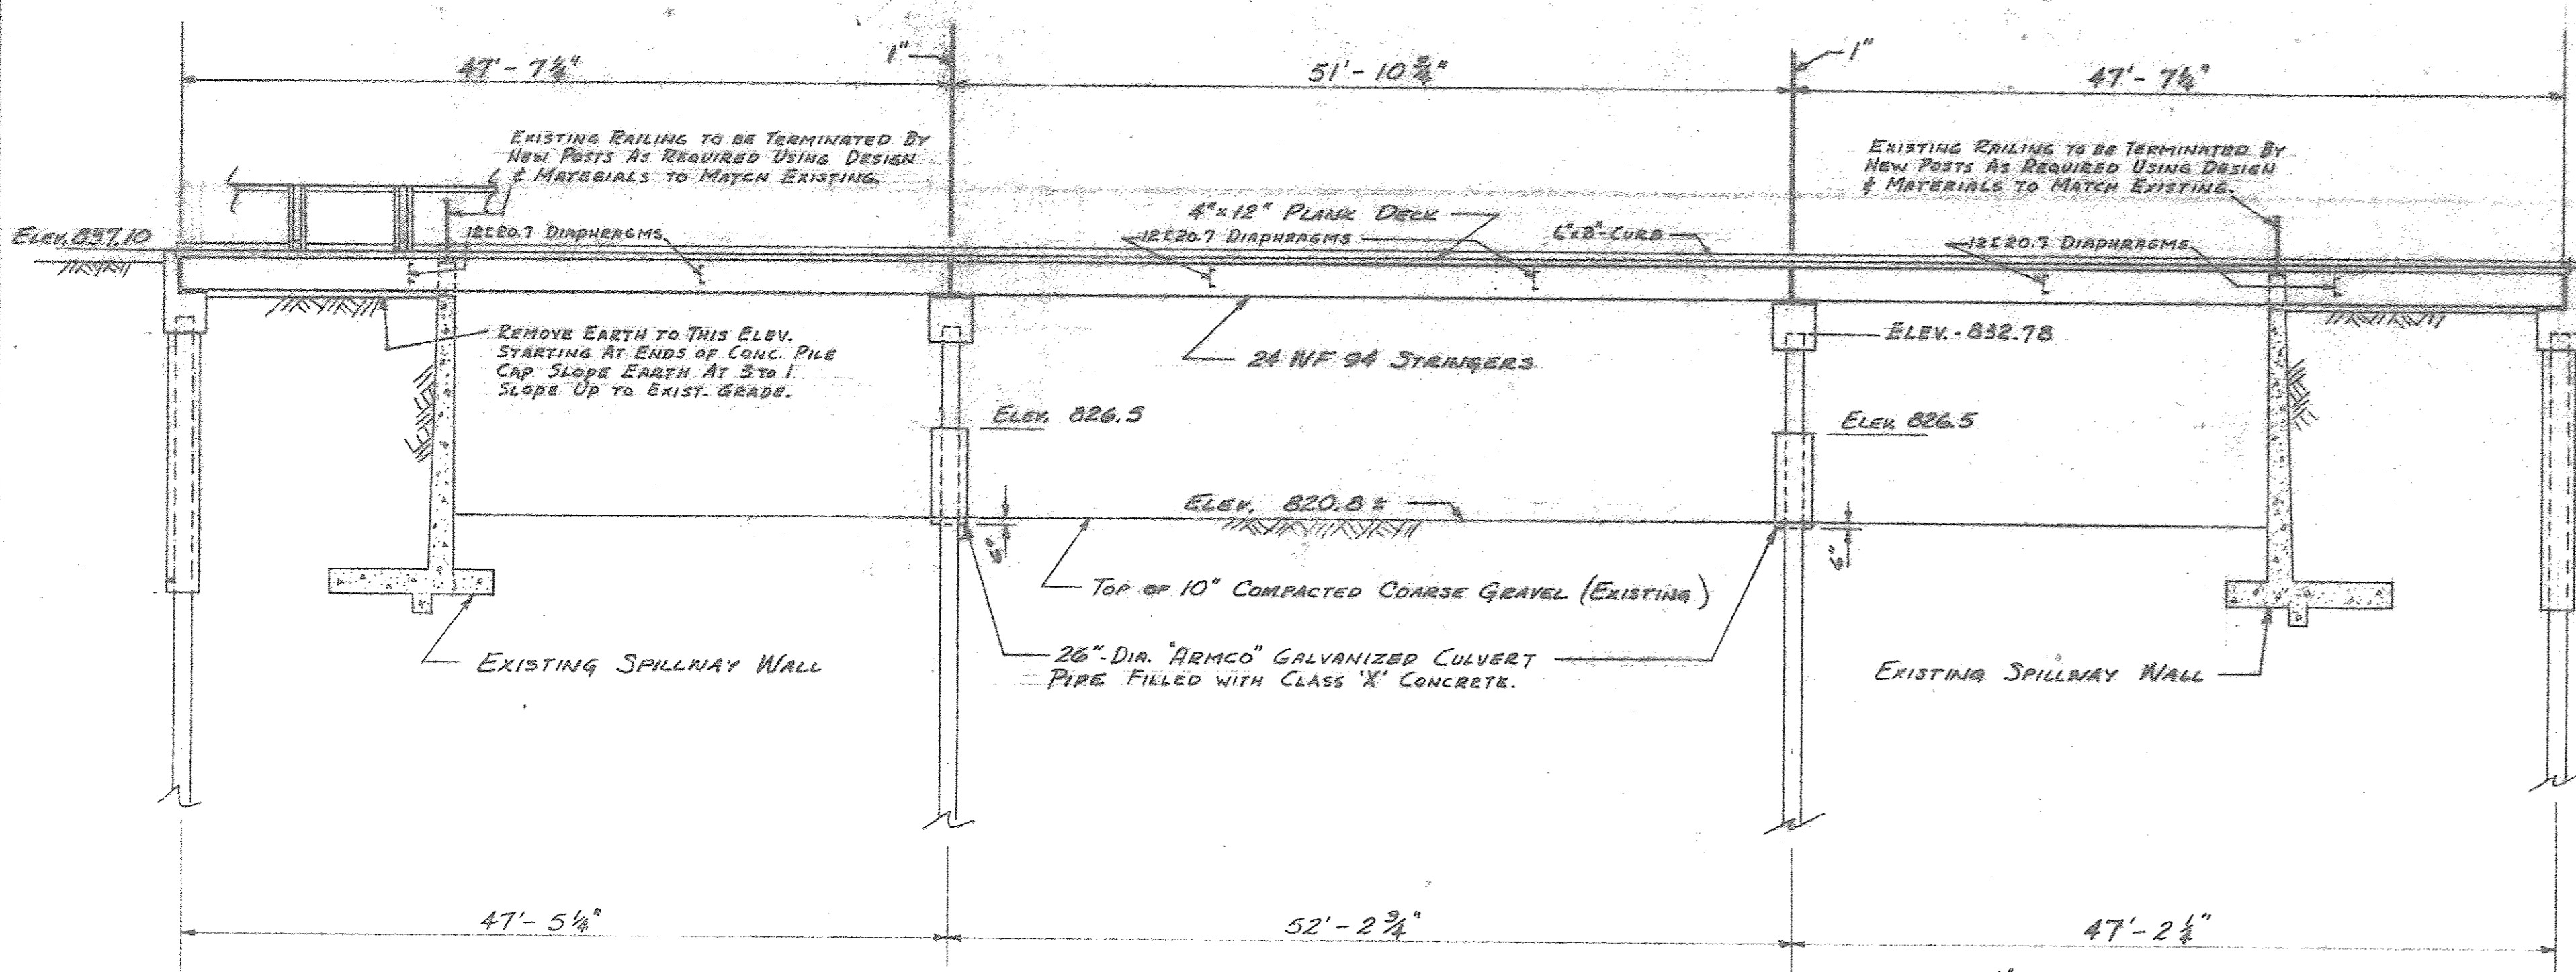 47'- 7¼"
1"
51'- 10¾"
1"
47'- 7¼"
EXISTING RAILING TO BE TERMINATED BY
NEW POSTS AS REQUIRED USING DESIGN
& MATERIALS TO MATCH EXISTING.
EXISTING RAILING TO BE TERMINATED BY
NEW POSTS AS REQUIRED USING DESIGN
& MATERIALS TO MATCH EXISTING.
ELEV. 837.10
12[20.7 DIAPHRAGMS
4"x12" PLANK DECK
12[20.7 DIAPHRAGMS
6"x8"-CURB
12[20.7 DIAPHRAGMS
REMOVE EARTH TO THIS ELEV.
STARTING AT ENDS OF CONC. PILE
CAP SLOPE EARTH AT 3 TO 1
SLOPE UP TO EXIST. GRADE.
24 WF 94 STRINGERS
ELEV.- 832.78
ELEV. 826.5
ELEV. 826.5
ELEV. 820.8 ±
6"
6"
TOP OF 10" COMPACTED COARSE GRAVEL (EXISTING)
EXISTING SPILLWAY WALL
26"-DIA. "ARMCO" GALVANIZED CULVERT
PIPE FILLED WITH CLASS 'X' CONCRETE.
EXISTING SPILLWAY WALL
47'- 5¼"
52'- 2¾"
47'- 2¼"